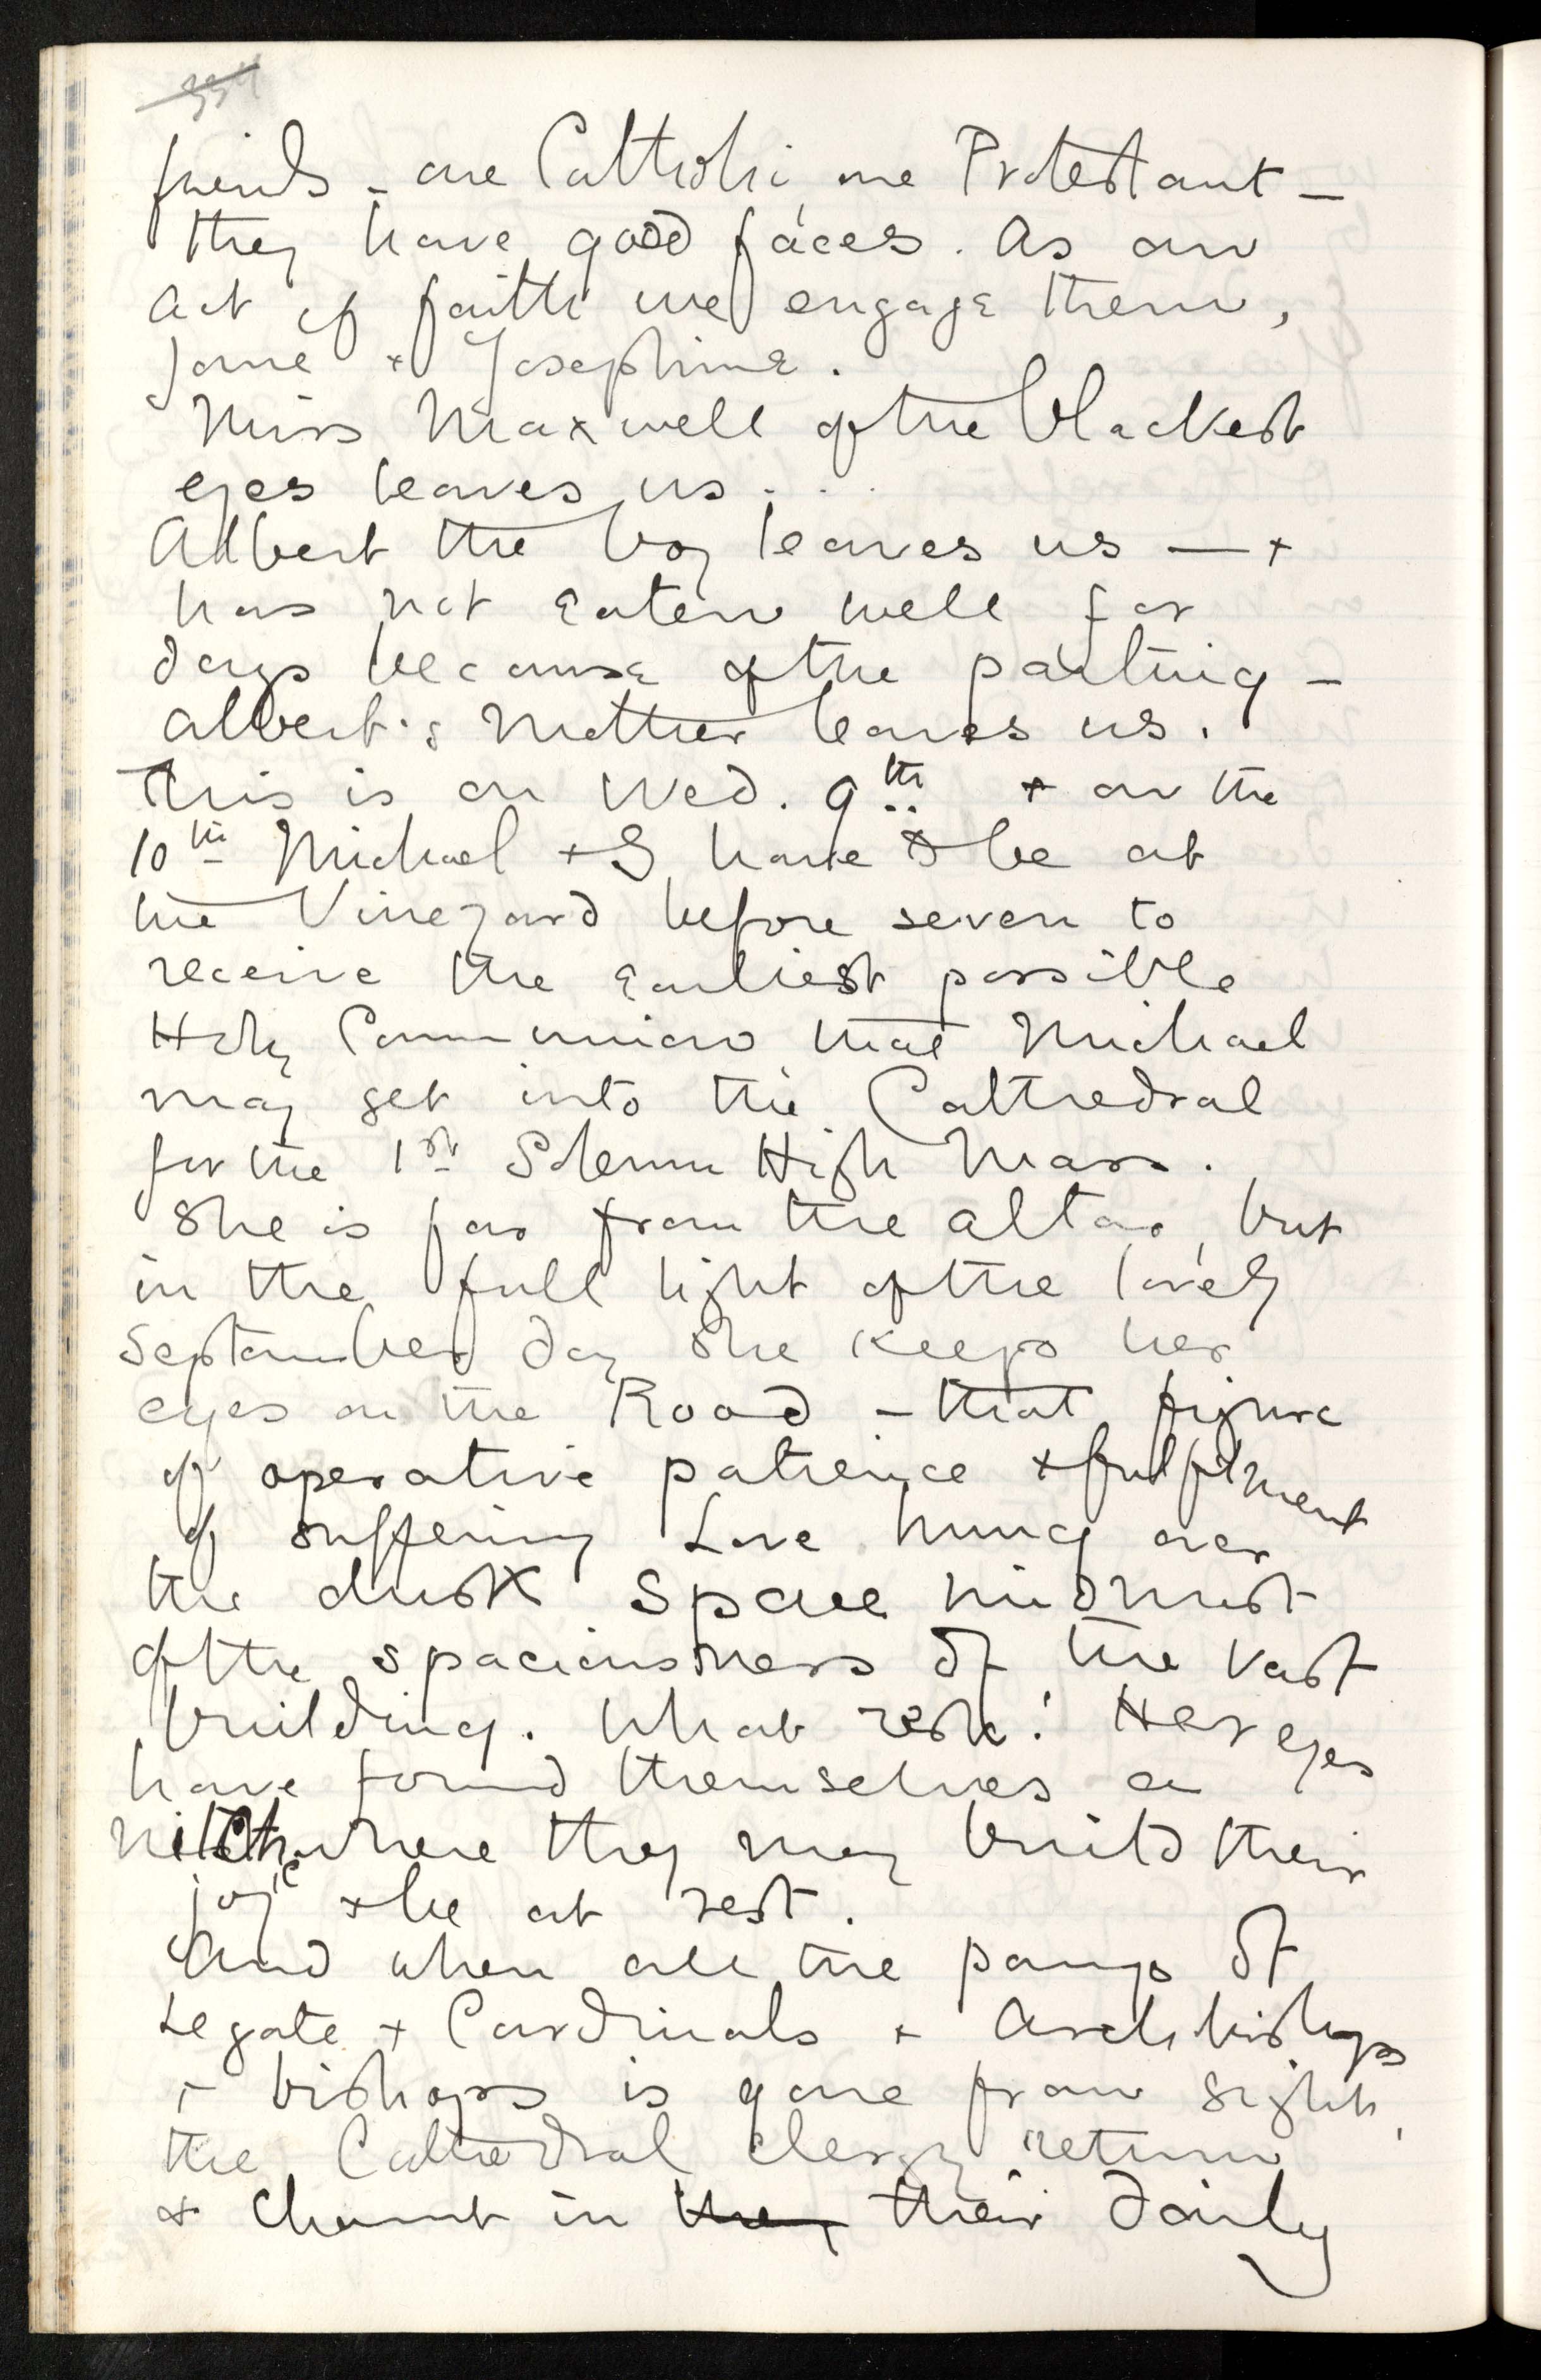 334
friends – one Catholic, one Protestant –
they have good faces. As an
act of faith we engage them,
Jane + Josephine.
Miss Maxwell of the blackest
eyes leaves us . . .
Albert the boy leaves us — +
has not eaten well for
days because of the parting –
Albert's Mother leaves us.
This is on Wed. 9th + on the
10th Michael + I have to be at
the Vineyard before seven to
receive the earliest possible
Holy Communion that Michael
may get into the Cathedral
for the 1st Solemn High Mass.
She is far from the altar, but
in the full light of the lovely
September day she keeps her
eyes on the Rood – that figure
of operative patience + fulfilment
of suffering Love hung over
the dusk space midmost
of the spaciousness of the vast
building. What rest! Her eyes
have found themselves a
nitch where they may build their
joy + be at rest.
And when all the pomp of
Legate + Cardinals + Archbishops
+ bishops is gone from sight,
the Cathedral clergy return
+ chant in they their daily